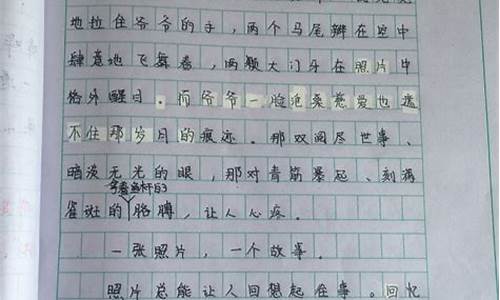 地拉住爷爷的手，两个马尾辫在空中
肆意地飞舞着，两颗大门牙在照片中
格外醒目。而爷爷一脸沧桑慈爱也遮
不住那岁月的痕迹。那双阅尽世事、
暗淡无光的眼，那对青筋暴起、刻满
雀斑的胳膊，让人心疼。
一张照片，一个故事。
照片总能让人回想起往事。回忆